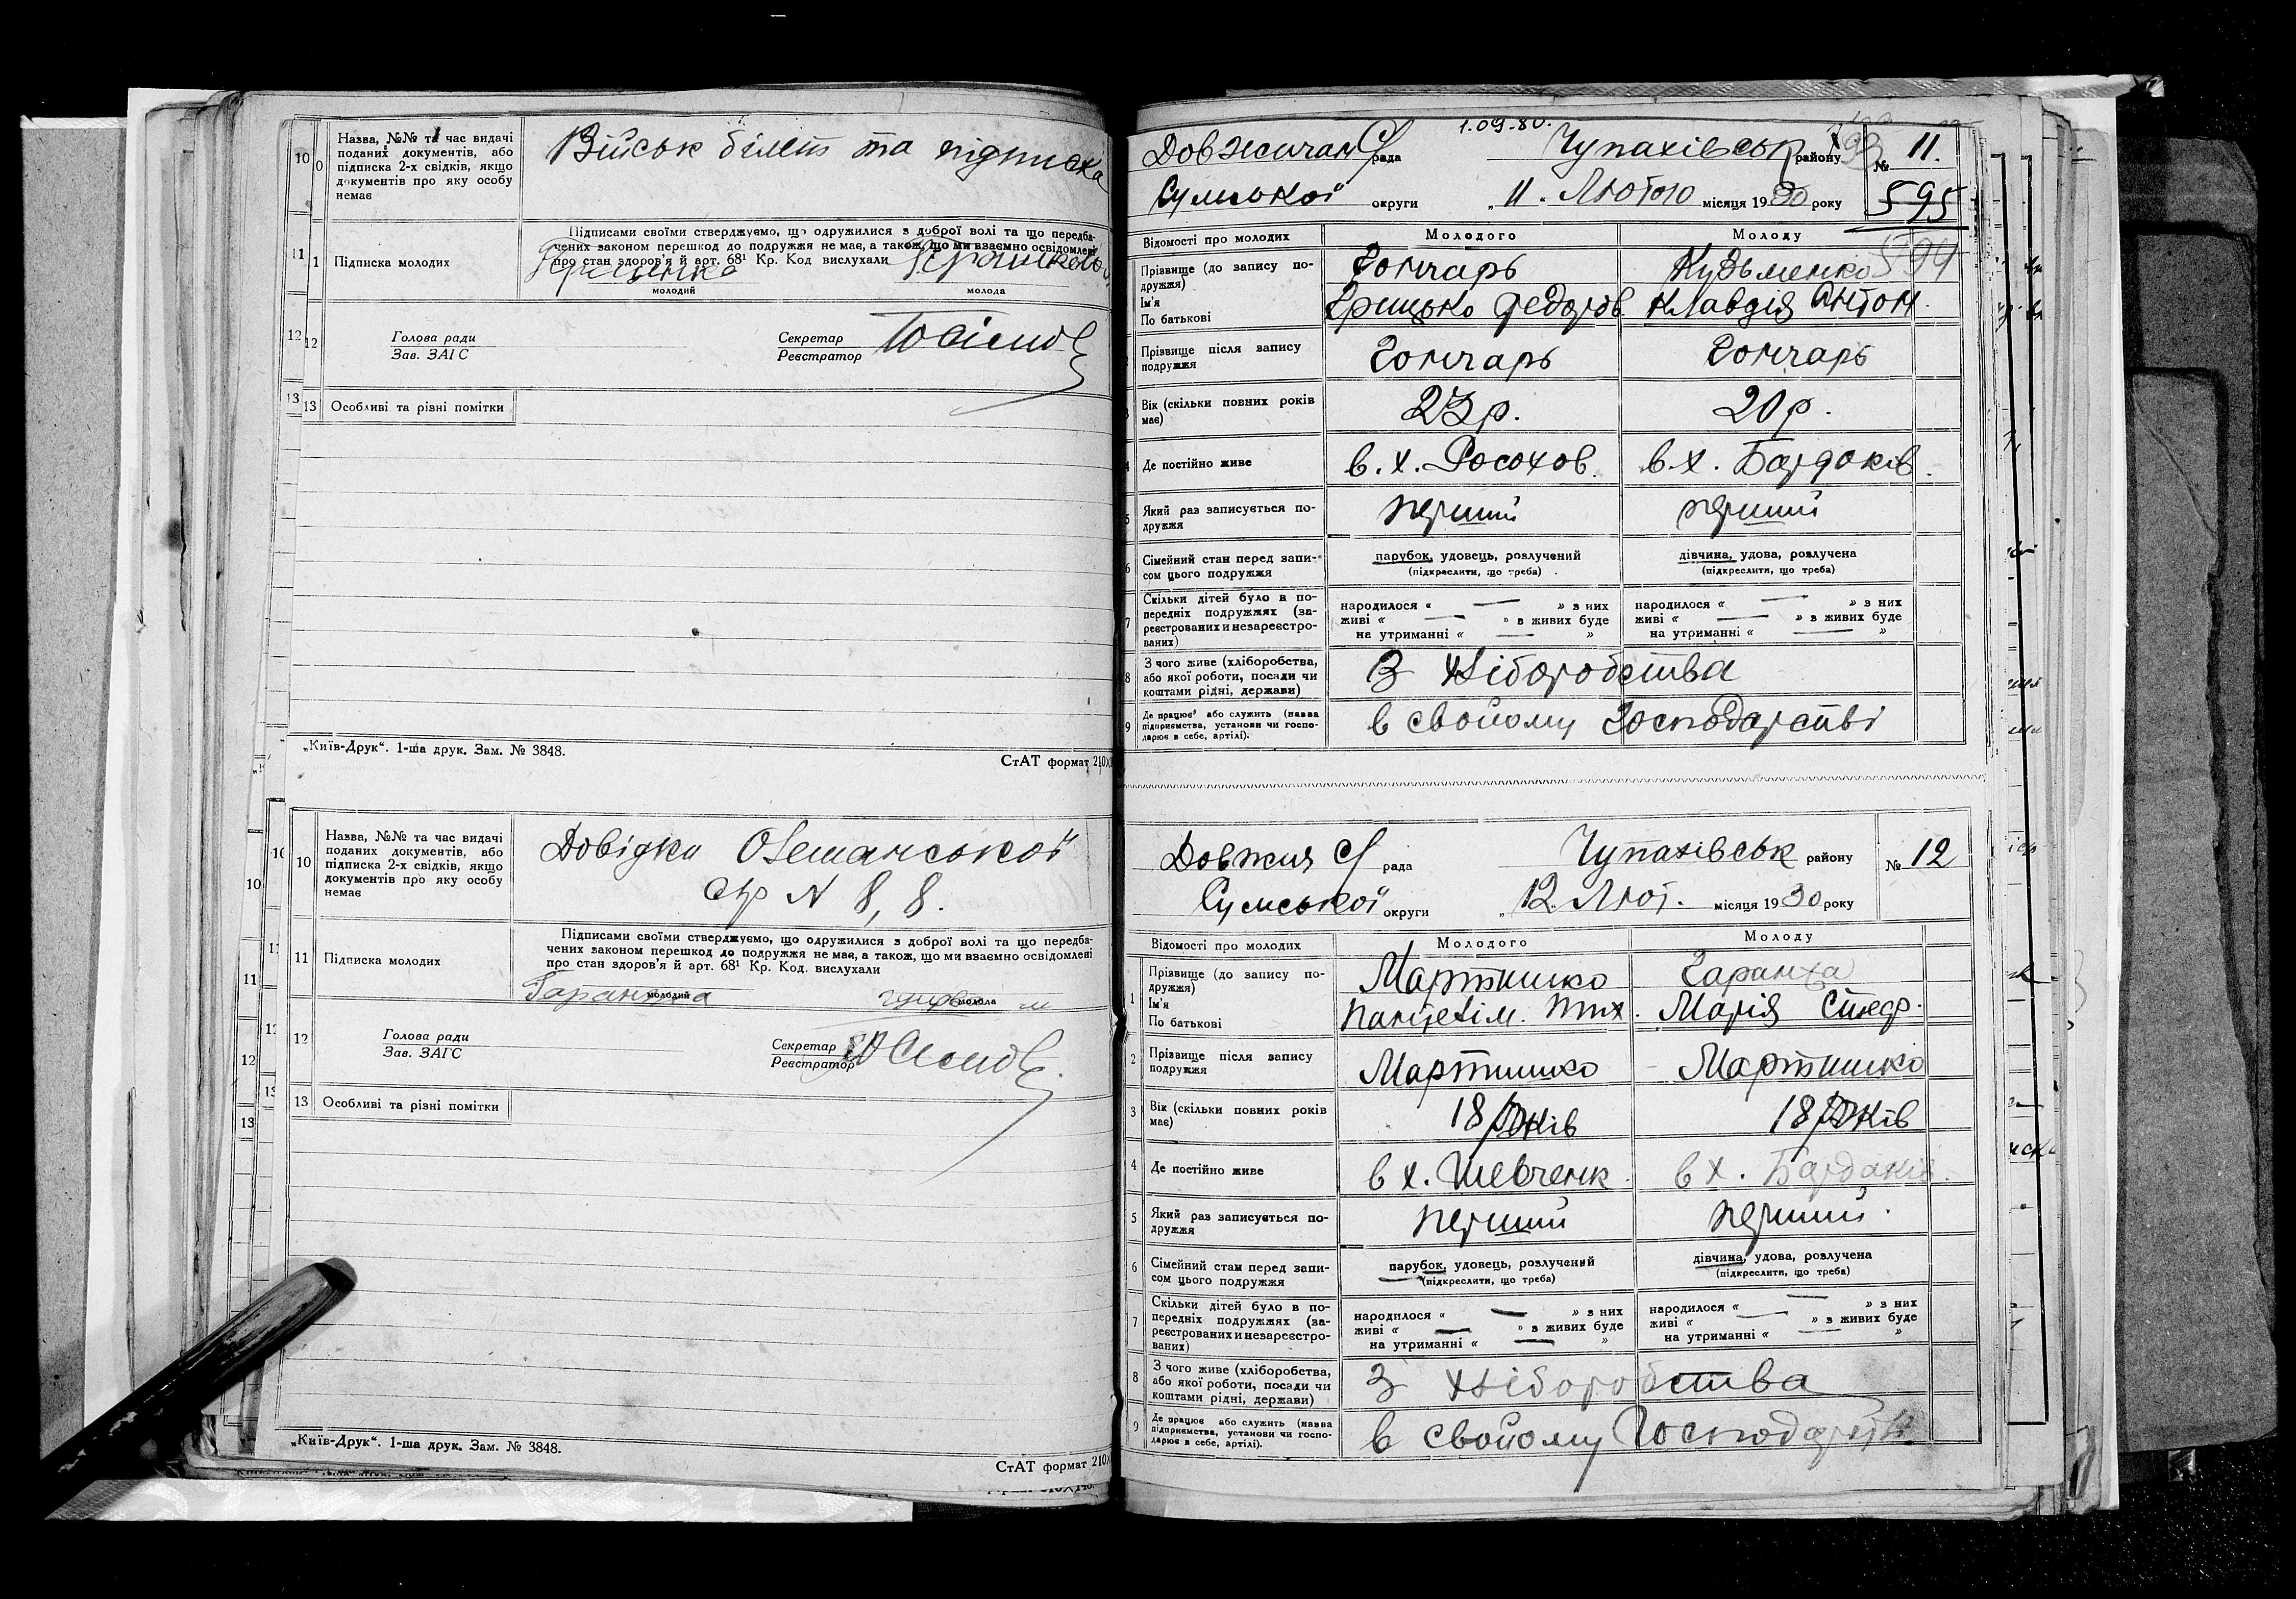 10 Назва, №№ та час видачі
поданих документів, або
підписка 2-х свідків, якщо
документів про яку особу
немає
Військ білет та підписка
11 Підписка молодих
Підписами своїми стверджуємо, що одружилися з доброї волі та що передба-
чених законом перешкод до подружжя не має, а також, що ми взаємно освідомлені
про стан здоров'я й арт. 68¹ Кр. Код вислухали
молодий молода
12 Голова ради
Зав. ЗАГС
Секретар
Реєстратор
13 Особливі та різні помітки
„Київ-Друк“. 1-ша друк. Зам. № 3848.
СтАТ формат 210
10 Назва, №№ та час видачі
поданих документів, або
підписка 2-х свідків, якщо
документів про яку особу
немає
Довідки
N 8, 8.
11 Підписка молодих
Підписами своїми стверджуємо, що одружилися з доброї волі та що передба-
чених законом перешкод до подружжя не має, а також, що ми взаємно освідомлені
про стан здоров'я й арт. 68¹ Кр. Код. вислухали
молодий молода
12 Голова ради
Зав. ЗАГС
Секретар
Реєстратор
13 Особливі та різні помітки
„Київ-Друк“. 1-ша друк. Зам. № 3848.
СтАТ формат 210
1.09.80.
Довжичан С/рада Чупахівськ району № 11.
Сумської округи „11. Лютого місяця 1930 року
595
594
Відомості про молодих Молодого Молоду
Прізвище (до запису по-
дружжя)
Гончарь Кузьменко
Ім'я
По батькові
Грицько Федоров. Клавдія Антон.
Прізвище після запису
подружжя
Гончарь Гончарь
Вік (скільки повних років
має)
23р. 20р.
Де постійно живе в. х. Росохов. в. х. Бардаків.
5 Який раз записується по-
дружжя
перший перший
6 Сімейний стан перед запи-
сом цього подружжя
парубок, удовець, розлучений дівчина, удова, розлучена
(підкреслити, що треба) (підкреслити, що треба)
7 Скільки дітей було в по-
передніх подружжях (за-
реєстрованих и незареєстро-
ваних)
народилося « — » з них народилося « — » з них
живі « — » з живих буде живі « — » з живих буде
на утриманні « — » на утриманні « — »
8 З чого живе (хліборобства,
або якої роботи, посади чи
коштами рідні, держави)
З хліборобства
9 Де працює або служить (назва
підприємства, установи чи госпо-
дарює в себе, артілі).
в свойому господарстві
Довжич С/рада Чупахівськ району № 12
Сумської округи „12. Лют. місяця 1930 року
Відомості про молодих Молодого Молоду
1 Прізвище (до запису по-
дружжя)
Мартишко Гаранжа
Ім'я
По батькові
Панцелім. Тих. Марія
2 Прізвище після запису
подружжя
Мартишко Мартишко
3 Вік (скільки повних років
має)
18 років 18 років
4 Де постійно живе в х. Шевченк. в х. Бардаків.
5 Який раз записується по-
дружжя
перший перший.
6 Сімейний стан перед запи-
сом цього подружжя
парубок, удовець, розлучений дівчина, удова, розлучена
(підкреслити, що треба) (підкреслити, що треба)
7 Скільки дітей було в по-
передніх подружжях (за-
реєстрованих и незареєстро-
ваних)
народилося « — » з них народилося « — » з них
живі « — » з живих буде живі « — » з живих буде
на утриманні « — » на утриманні « »
8 З чого живе (хліборобства,
або якої роботи, посади чи
коштами рідні, держави)
З хліборобства
9 Де працює або служить (назва
підприємства, установи чи госпо-
дарює в себе, артілі).
в свойому господарстві